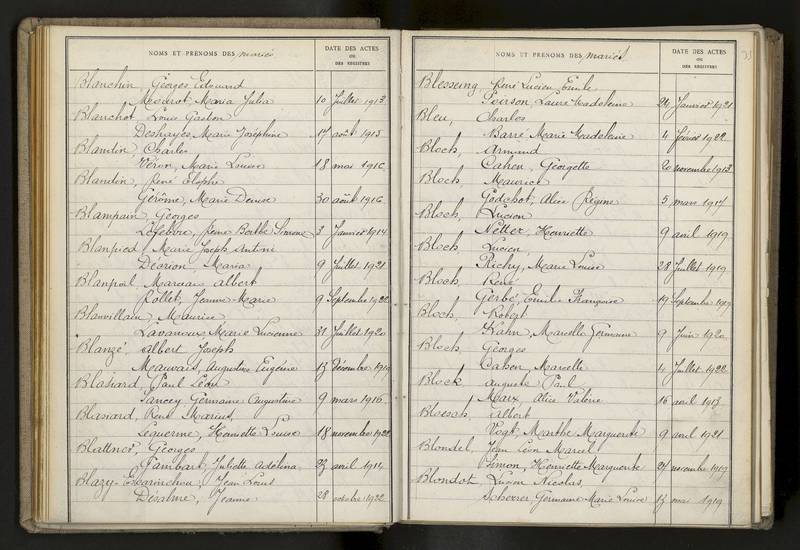 NOMS ET PRÉNOMS DES mariés
DATE DES ACTES
OU
DES REGISTRES
Blanchin, Georges Edouard
Moderot, Maria Julia 10 Juillet 1913
Blanchot, Louis Gaston
Deshayes Marie Joséphine 17 août 1915
Blandin, Charles
Véron, Marie Louise 18 mai 1916
Blandin, René Elophe
Gérôme, Marie Denise 30 août 1916
Blampain, Georges
Lefebvre, Irène Berthe Simone 3 Janvier 1914
Blanpied, Marie Joseph Antoni
Décrion, Maria 9 Juillet 1921
Blanpoil, Albert
Rollet, Jeanne-Marie 9 Septembre 1922
Blanvillain, Maurice
Lavanoux Marie Lucienne 31 Juillet 1920
Blanzé, Albert Joseph
Mauvais, Augustine Eugénie 13 décembre 1919
Blasiard, Paul Léon
Sancey Germaine Augustine 9 mars 1916
Blasiard, René Marius,
Leguerme, Henriette Louise 18 novembre 1922
Georges
Jambart, Juliette Adélina 23 avril 1914
Jean Louis
Désalme, Jeanne 28 octobre 1922
NOMS ET PRÉNOMS DES mariés
DATE DES ACTES
OU
DES REGISTRES
Blesseung René Lucien Emile
Poirson Laure Madeleine 24 Janvier 1921
Bleu, Charles
Barré Marie Madeleine 4 février 1922
Bloch, Armand
Cahen, Georgette 20 novembre 1913
Bloch, Maurice
Godchot, Alice Régine 5 mars 1917
Bloch, Lucien
Netter, Henriette 9 avril 1919
Bloch, Lucien,
Richy, Marie Louise 28 Juillet 1919
Bloch, René
Gerbé, Emilie Françoise 19 Septembre 1919
Bloch, Robert
Kahn, Marcelle Germaine 9 Juin 1920
Bloch, Georges
Cahen, Marcelle 4 Juillet 1922
Block, Auguste Paul
Marx, Alice Valérie 16 avril 1913
Bloesch, Albert
Vogt, Marthe Marguerite 9 avril 1921
Blondel, Jean Léon Marcel
Simon, Henriette Marguerite 24 novembre 1919
Blondot, Lucien Nicolas,
Scherrer Germaine Marie Louise 13 mai 1919